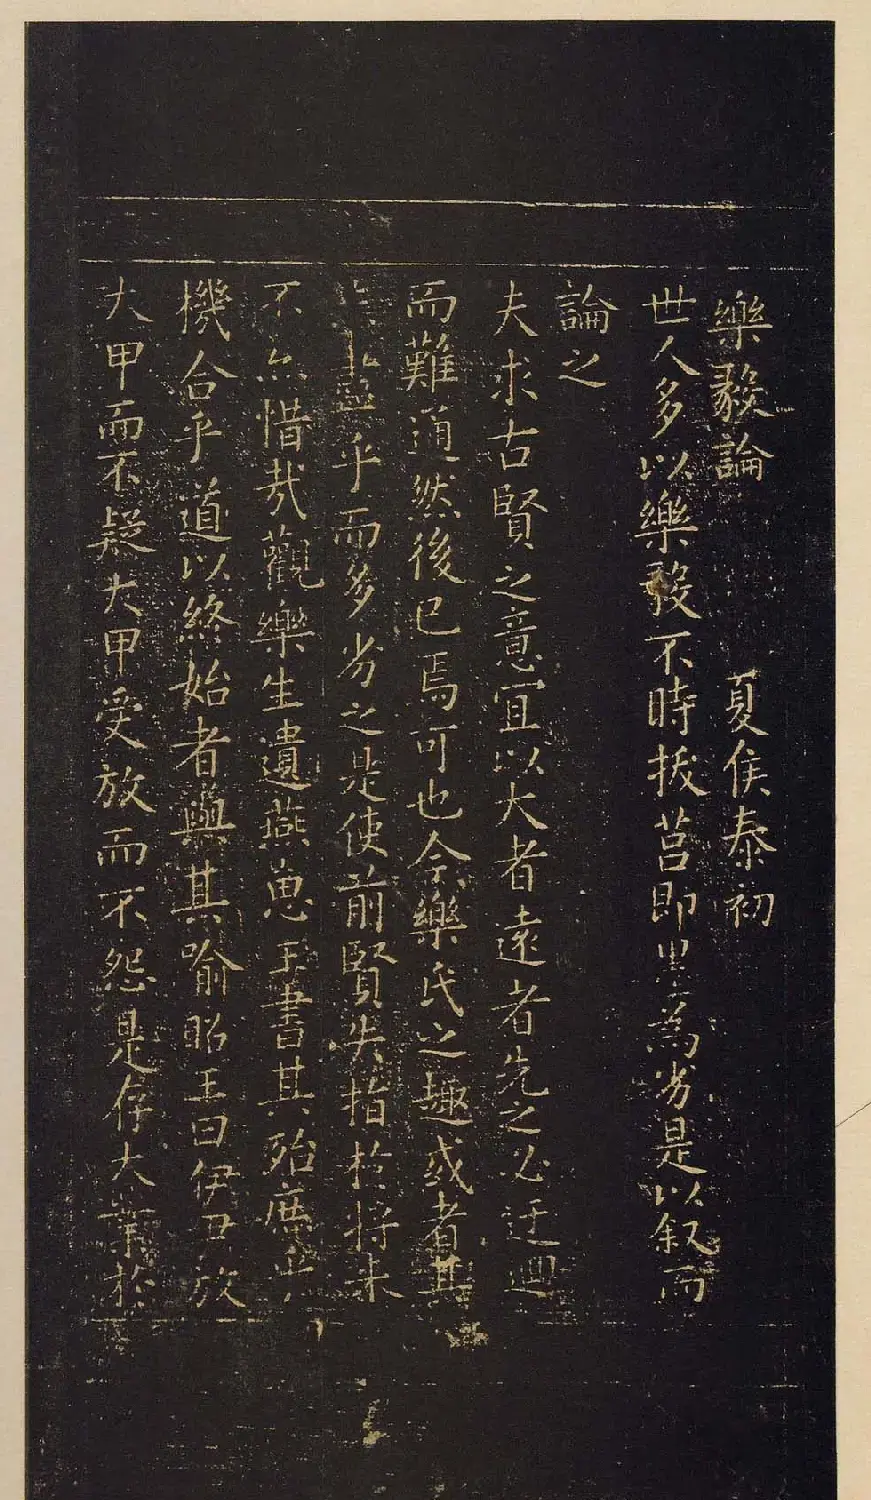 樂毅論 夏侯泰初
世人多以樂毅不時拔莒即墨為劣是以叙而
論之
夫求古賢之意宜以大者遠者先之必迂迴
而難通然後已焉可也今樂氏之趣或者其
乎而多劣之是使前賢失指於將来
不亦惜哉觀樂生遺燕惠王書其殆庶
機合乎道以終始者與其喻昭王曰伊尹放
大甲而不疑大甲受放而不怨是存大業於